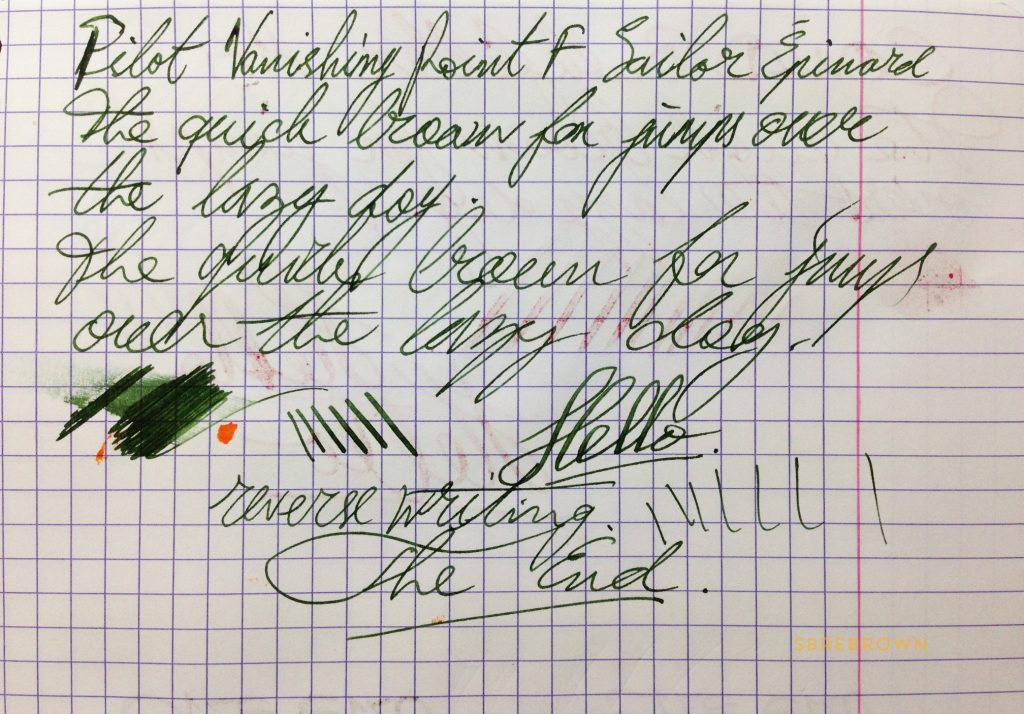 Pilot Vanishing Point F Sailor Epinard
The quick brown fox jumps over
the lazy dog.
The quick brown fox jumps
over the lazy dog.
Hello.
reverse writing.
The End.
SBREBROWN